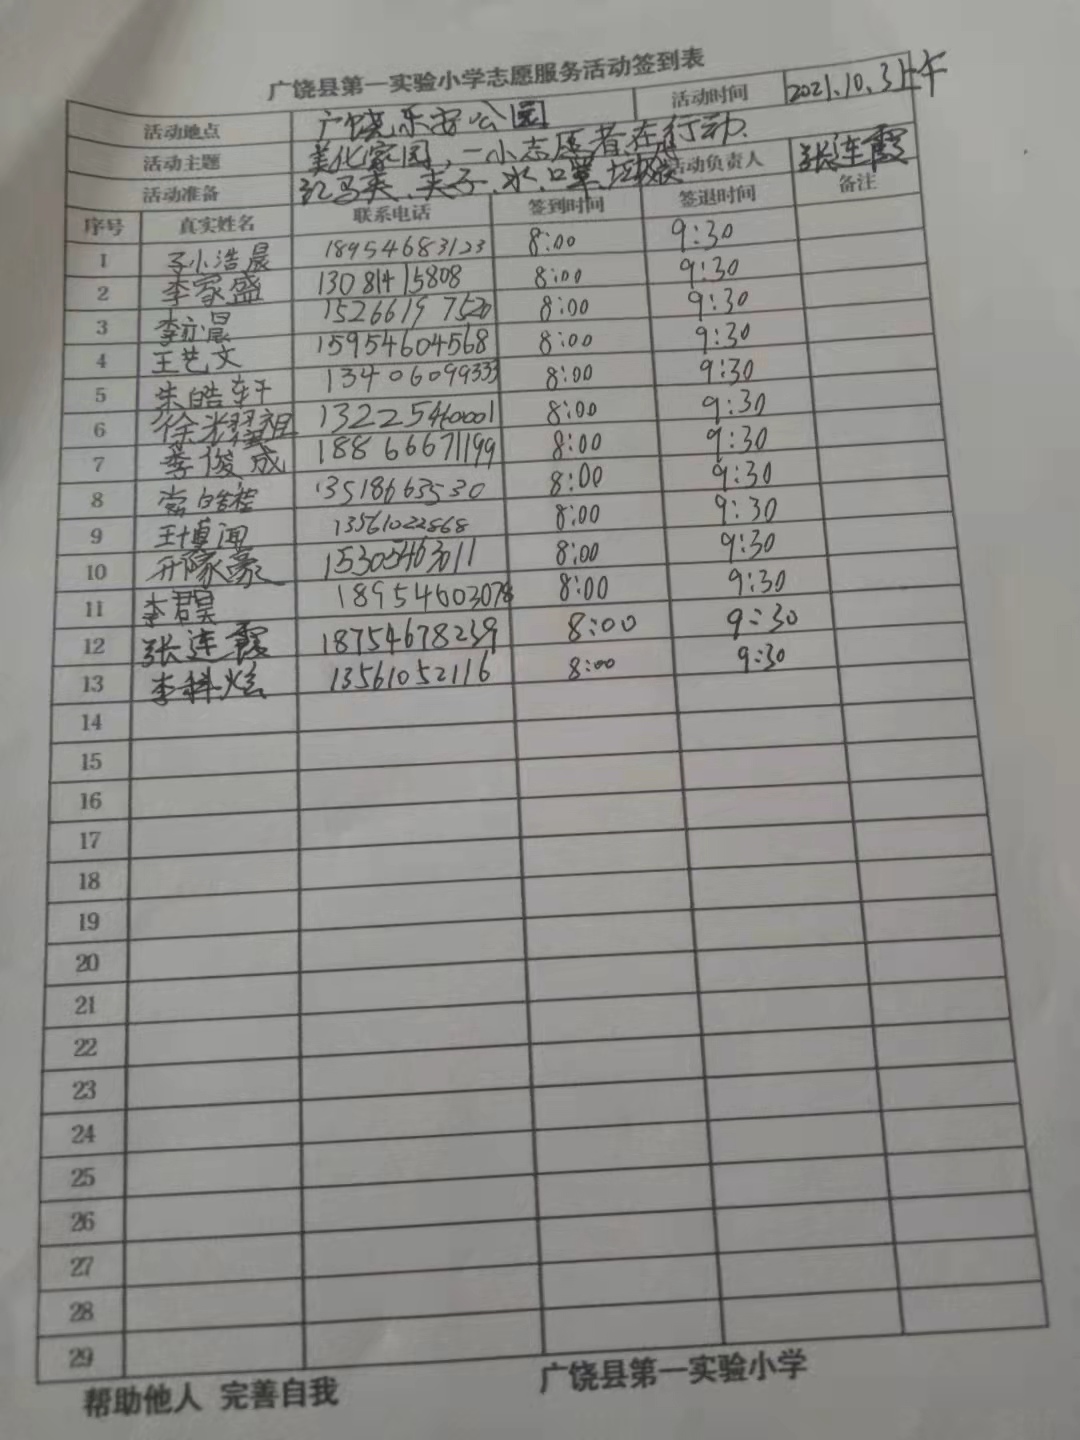 广饶县第一实验小学志愿服务活动签到表
活动地点 广饶乐安公园 活动时间 2021.10.3上午
活动主题 美化家园,一小志愿者在行动.
活动准备 红马夹、夹子、水、口罩、垃圾袋 活动负责人 张连霞
序号 真实姓名 联系电话 签到时间 签退时间 备注
1 孙浩晨 18954683123 8:00 9:30
2 李家盛 13081415808 8:00 9:30
3 李亦晨 15266197520 8:00 9:30
4 王艺文 15954604568 8:00 9:30
5 朱皓轩 13406099333 8:00 9:30
6 徐光耀祖 13225460001 8:00 9:30
7 李俊成 18866671199 8:00 9:30
8 常皓程 13518663530 8:00 9:30
9 王博闻 13561022868 8:00 9:30
10 15305463011 8:00 9:30
11 李君昊 18954603078 8:00 9:30
12 张连霞 18754678239 8:00 9:30
13 李科炫 13561052116 8:00 9:30
14
15
16
17
18
19
20
21
22
23
24
25
26
27
28
29
帮助他人 完善自我 广饶县第一实验小学